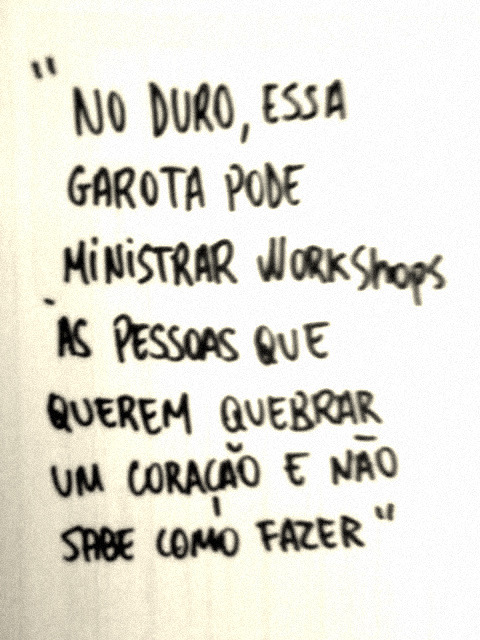 "NO DURO, ESSA
GAROTA PODE
MINISTRAR WORKShops
ÀS PESSOAS QUE
QUEREM QUEBRAR
UM CORAÇÃO E NÃO
SABE COMO FAZER"